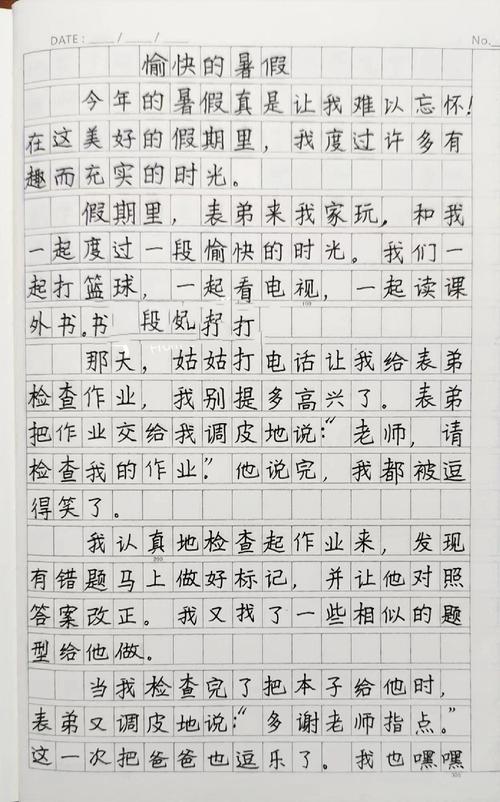 DATE: / /
No.
愉快的暑假
今年的暑假真是让我难以忘怀!
在这美好的假期里，我度过许多有
趣而充实的时光。
假期里，表弟来我家玩，和我
一起度过一段愉快的时光。我们一
起打篮球，一起看电视，一起读课
外书。书 段 打
那天，姑姑打电话让我给表弟
检查作业，我别提多高兴了。表弟
把作业交给我调皮地说:“老师，请
检查我的作业”他说完，我都被逗
得笑了。
我认真地检查起作业来，发现
有错题马上做好标记，并让他对照
答案改正。我又找了一些相似的题
型给他做。
当我检查完了把本子给他时，
表弟又调皮地说:“多谢老师指点。”
这一次把爸爸也逗乐了。我也嘿嘿